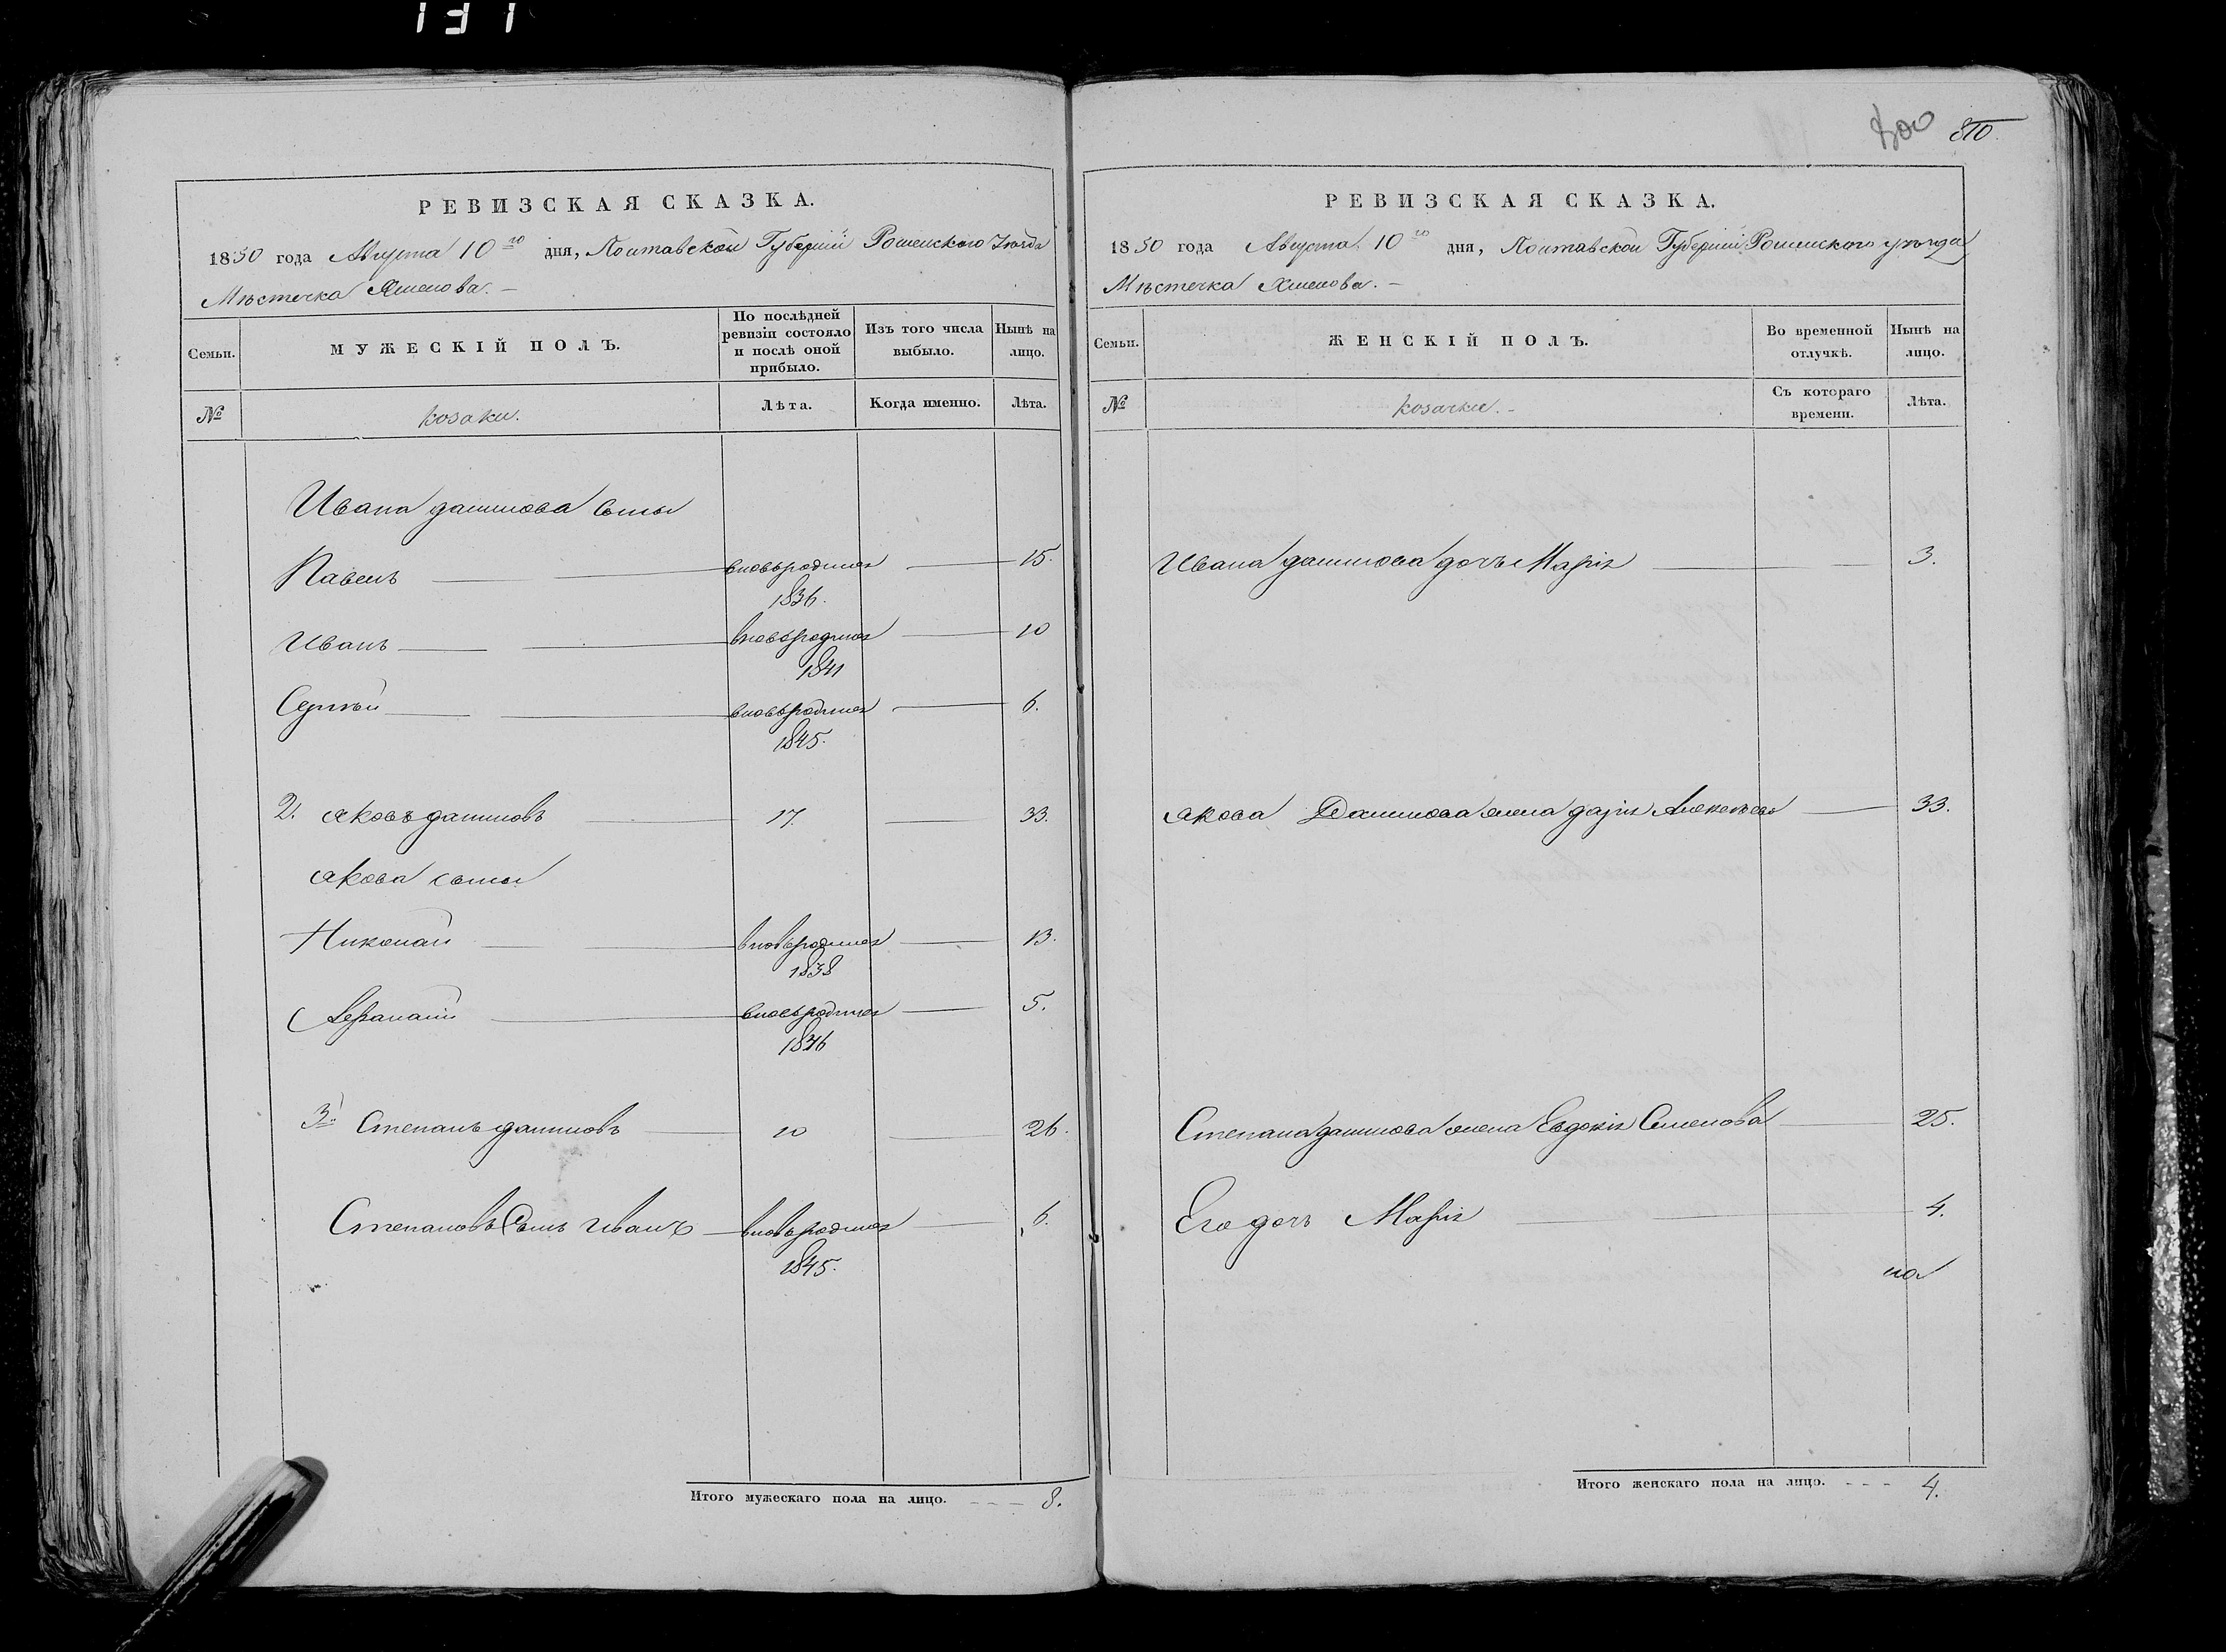 131
РЕВИЗСКАЯ СКАЗКА.
1850 года Августа 10го дня, Полтавской Губерніи Роменского Уѣзда
Мѣстечка Хмелова. —
Семьи.
МУЖЕСКІЙ ПОЛЪ.
По послѣдней ревизіи состояло и послѣ оной прибыло.
Изъ того числа выбыло.
Нынѣ на лицо.
№
козаки.
Лѣта.
Когда именно.
Лѣта.
Ивана данилова сыны
Павелъ вновьродился 1836. 15.
Иванъ вновьродился 1841 10
Сергѣй вновьродился 1845. 6.
2. Яковъ даниловъ 17. 33.
Якова сыны
Николай вновьродился 1838 13.
Афанасий вновьродился 1846 5.
3й Степанъ даниловъ 10 26.
Степановъ Сынъ иванъ вновьродился 1845. 6.
Итого мужескаго пола на лицо. - - - 8.
800 810.
РЕВИЗСКАЯ СКАЗКА.
1850 года Августа 10го дня, Полтавской Губерніи Роменского уѣзда
Мѣстечка Хмелова. —
Семьи.
ЖЕНСКІЙ ПОЛЪ.
Во временной отлучкѣ.
Нынѣ на лицо.
№
козачки. -
Съ котораго времени.
Лѣта.
Ивана данилова дочь Марія 3.
Якова Данилова жена дарія Алексѣева 33.
Степана данилова жена Евдокія Семенова 25.
Его дочь Марія 4.
на
Итого женскаго пола на лицо. - - - 4.